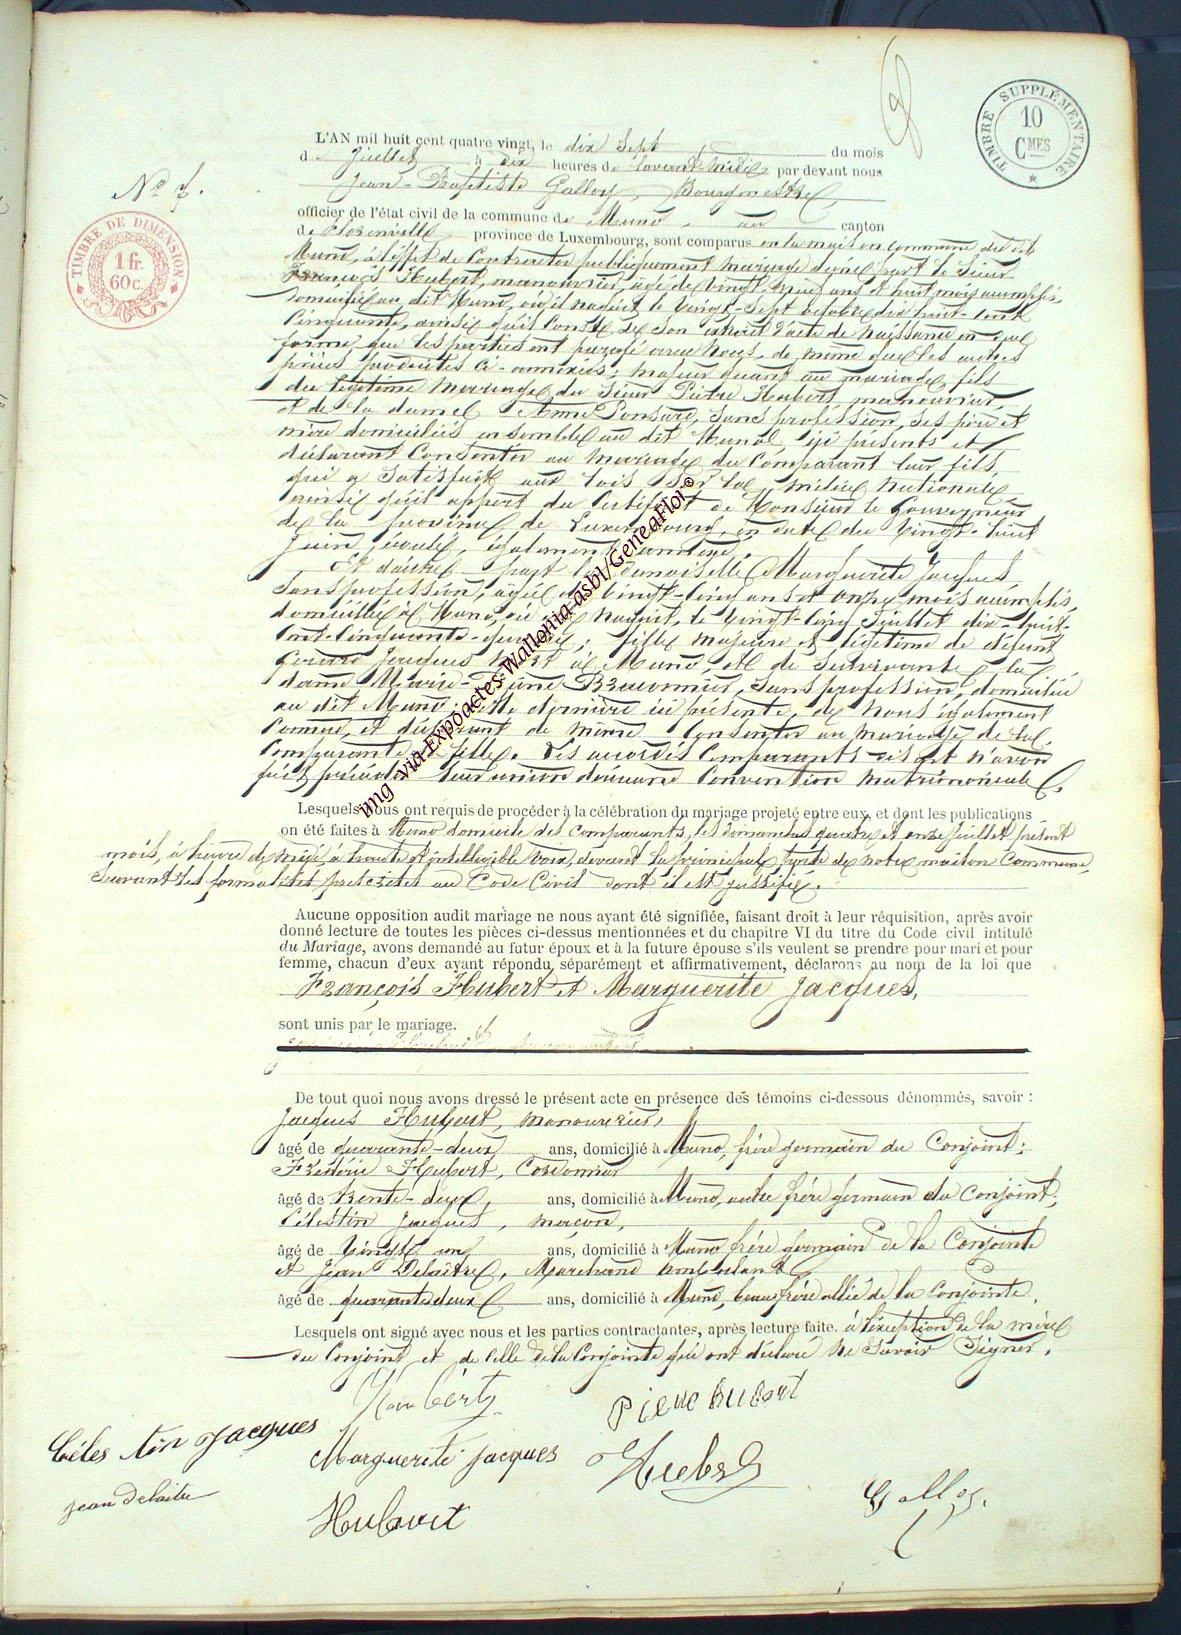 TIMBRE SUPPLÉMENTAIRE
10
CMES
L'AN mil huit cent quatre vingt, le dix sept du mois
de Juillet à dix heures de l'avant-midi, par devant nous
Jean-Baptiste Galloy, Bourgmestre,
No 7.
officier de l'état civil de la commune de Muno, au canton
de Florenville, province de Luxembourg, sont comparus en la maison commune du dit
TIMBRE DE DIMENSION
1 fr.
60c.
Muno, à l'effet de contracter publiquement mariage d'une part le Sieur
François Hubert, manouvrier, âgé de vingt neuf ans et huit mois accomplis,
domicilié au dit Muno, où il naquit le vingt-sept octobre dix huit-cent
cinquante, ainsi qu'il conste de son extrait d'acte de naissance en due
forme que les parties ont paraphé avec nous, de même que les autres
pièces produites ci-annexées; majeur quant au mariage, fils
du légitime mariage du Sieur Pierre Hubert, manouvrier,
et de la dame Anne Ponsard, sans profession, ses père et
mère domiciliés ensemble au dit Muno, ici présents et
déclarant consentir au mariage du comparant leur fils,
qui a satisfait aux lois sur la milice nationale
ainsi qu'il appert du certificat de Monsieur le Gouverneur
de la province de Luxembourg, en date du vingt-huit
Juin écoulé, également annexé.
Et d'autre part la demoiselle Marguerite Jacques,
sans profession, âgée de vingt-cinq ans et onze mois accomplis,
domiciliée à Muno, où elle naquit, le vingt-cinq Juillet dix-huit-
cent-cinquante-quatre; fille majeure et légitime de défunt
Jacques mort à Muno, et de survivante la
dame Marie-Jeanne sans profession, domiciliée
au dit Muno; cette dernière ici présente, de nous également
connue, et déclarant de même consentir au mariage de la
comparante sa fille. Les accordés comparants disent n'avoir
fait précéder leur union d'aucune convention matrimoniale.
img via Expoactes-Wallonia-asbl/GeneaFloi©
Lesquels nous ont requis de procéder à la célébration du mariage projeté entre eux, et dont les publications
on été faites à Muno domicile des comparants, les dimanches quatre et onze Juillet présent
mois, à heure de midi, à haute et intelligible voix, devant la principale porte de notre maison commune,
suivant les formalités prescrites au Code Civil dont il est justifié.
Aucune opposition audit mariage ne nous ayant été signifiée, faisant droit à leur réquisition, après avoir
donné lecture de toutes les pièces ci-dessus mentionnées et du chapitre VI du titre du Code civil intitulé
du Mariage, avons demandé au futur époux et à la future épouse s'ils veulent se prendre pour mari et pour
femme, chacun d'eux ayant répondu séparément et affirmativement, déclarons au nom de la loi que
François Hubert et Marguerite Jacques,
sont unis par le mariage.
De tout quoi nous avons dressé le présent acte en présence des témoins ci-dessous dénommés, savoir :
Jacques Hubert, manouvrier,
âgé de quarante-deux ans, domicilié à Muno, frère germain du Conjoint;
Hubert, Cordonnier
âgé de trente-deux, ans, domicilié à Muno, autre frère germain du Conjoint;
Célestin Jacques, maçon,
âgé de vingt un ans, domicilié à Muno frère germain de la Conjointe
et Jean Delaitre, Marchand
âgé de quarante deux ans, domicilié à Muno, beau frère allié de la Conjointe.
Lesquels ont signé avec nous et les parties contractantes, après lecture faite. à l'exception de la mère
du Conjoint et de celle de la Conjointe qui ont déclaré ne savoir Signer.
Pierre Hubert
Célestin Jacques
Marguerite Jacques
Hubert
jean delaitre
Galloy.
Hubert